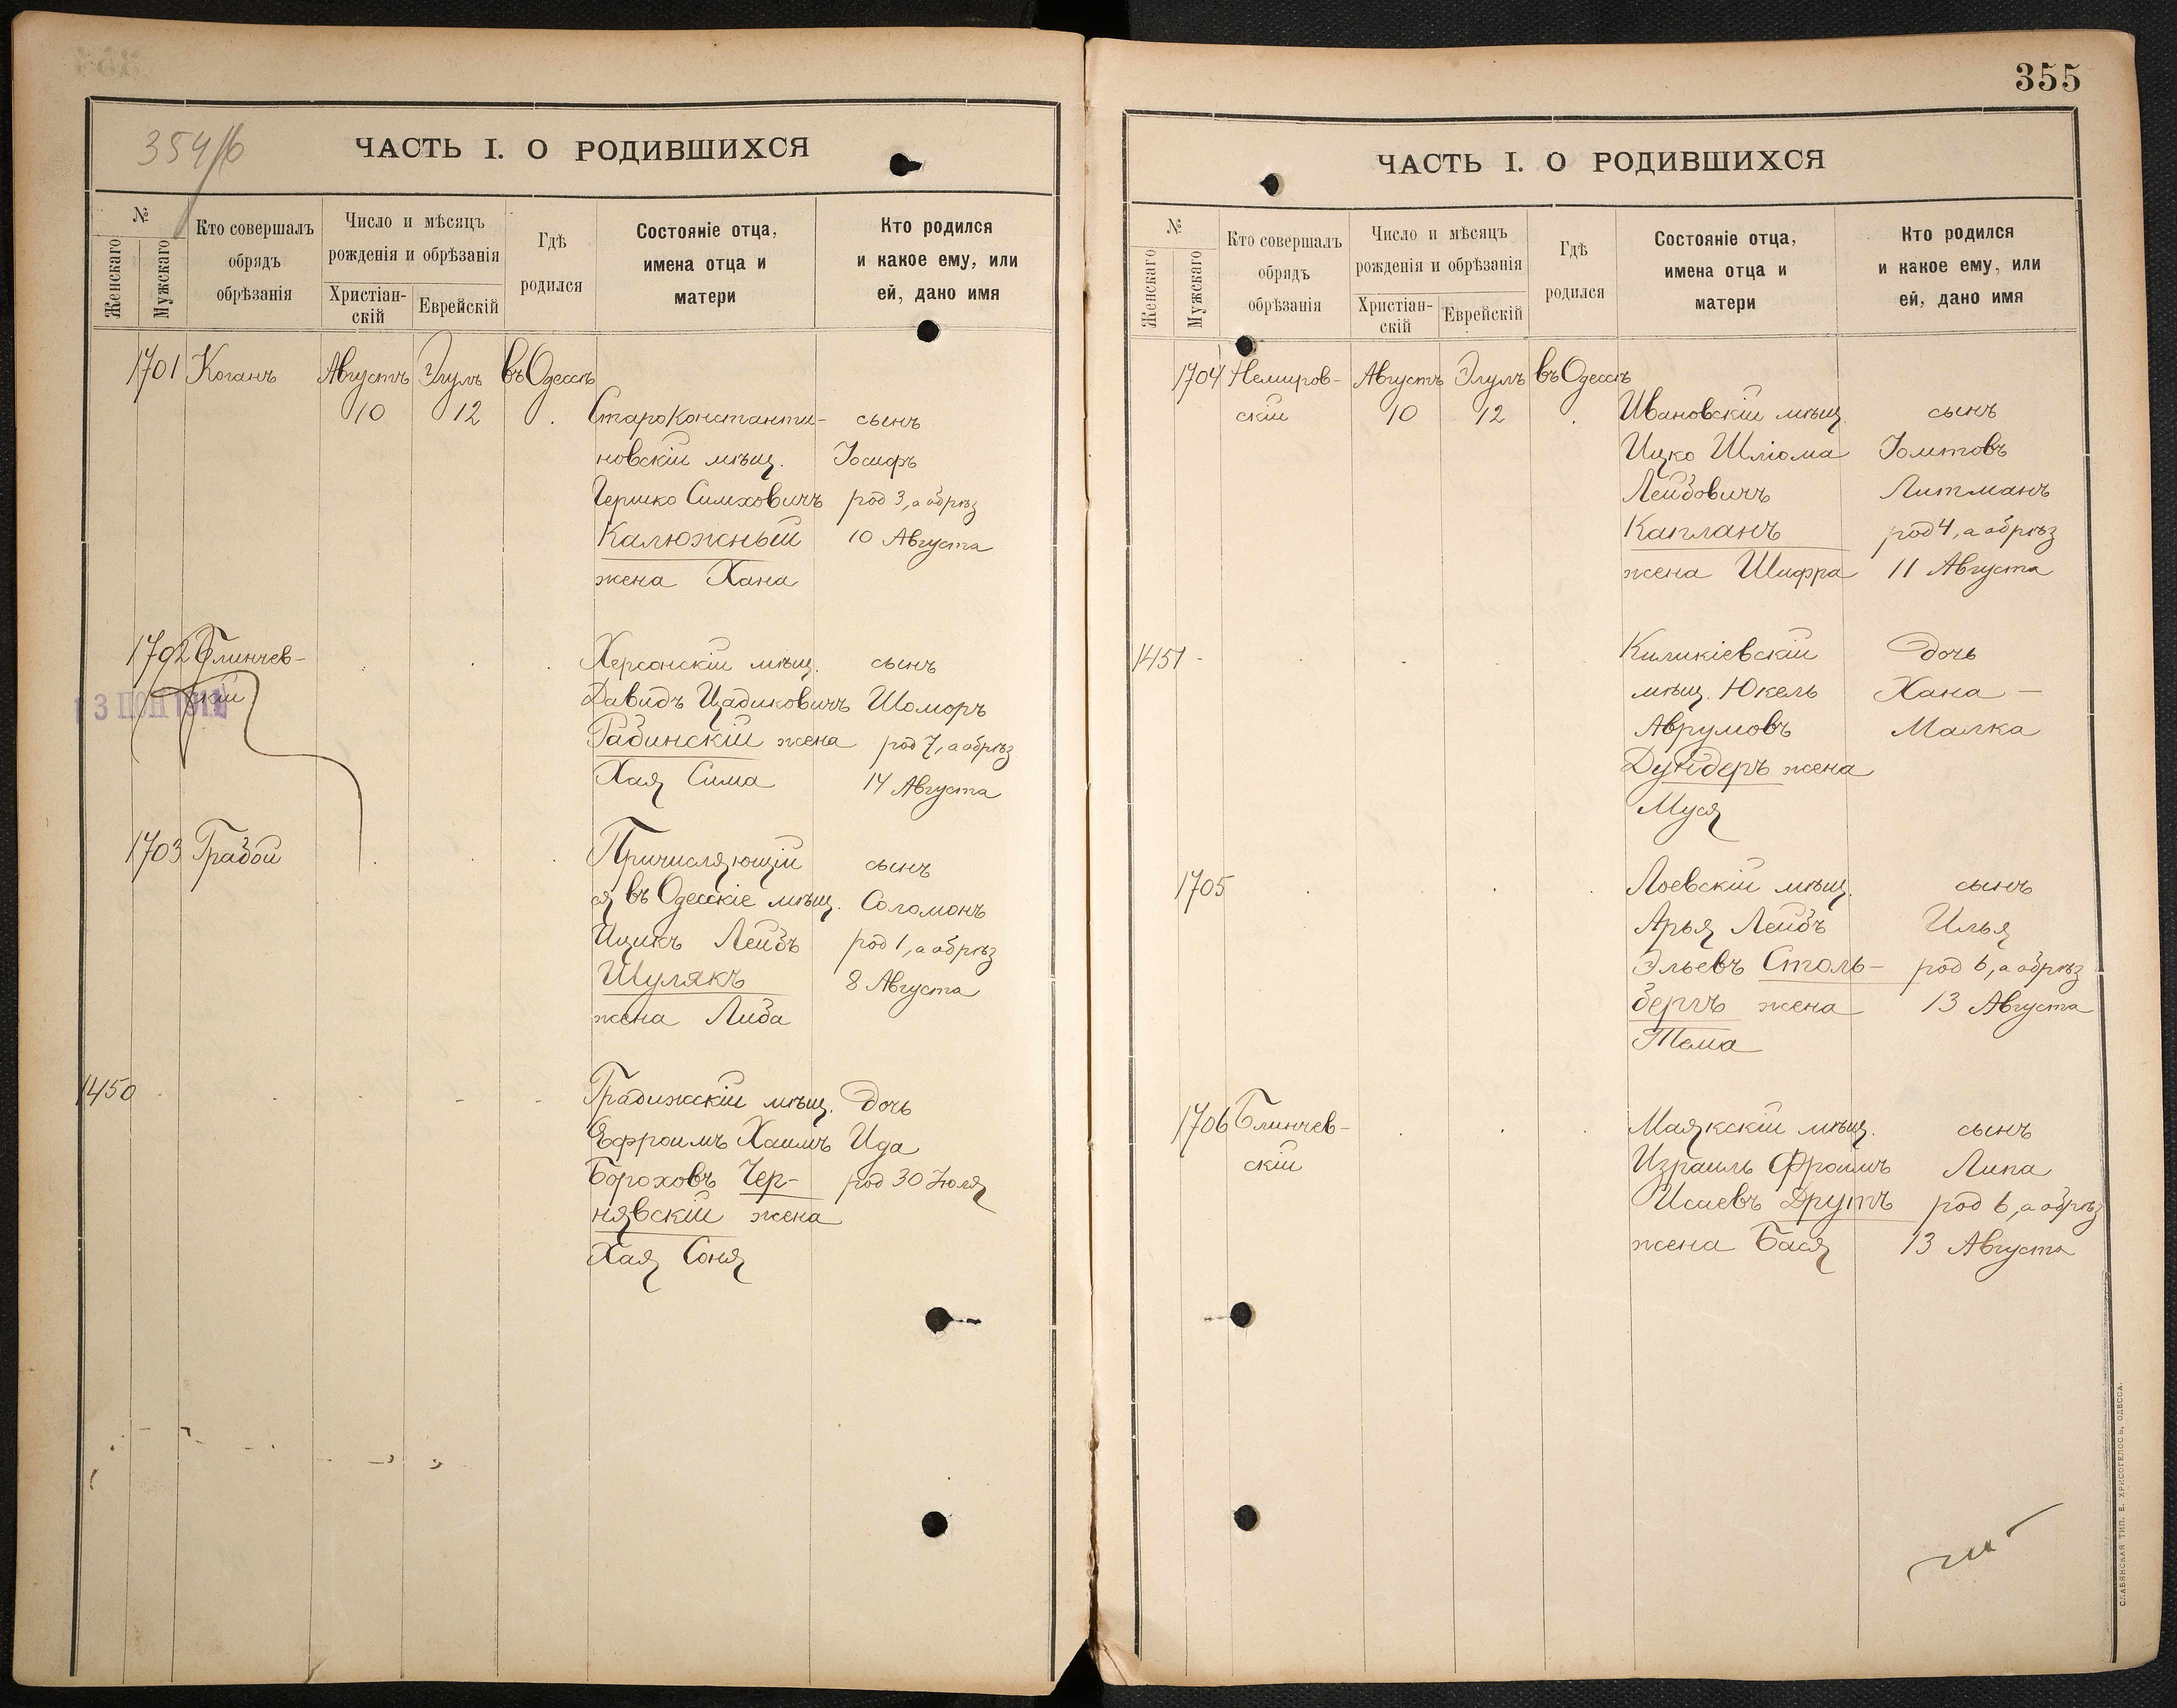 354/б
ЧАСТЬ I. О РОДИВШИХСЯ
№
Женскаго
Мужскаго
Кто совершалъ
обрядъ
обрѣзанія
Число и мѣсяцъ
рожденія и обрѣзанія
Христіан-
скій
Еврейскій
Гдѣ
родился
Состояніе отца,
имена отца и
матери
Кто родился
и какое ему, или
ей, дано имя
1701 Коганъ Августъ Элулъ въ Одессѣ
10 12 Староконстанти- сынъ
новскій мѣщ. Іосифъ
Гершко Симховичъ род 3, а обрѣз
Калюжный 10 Августа
жена Хана
1702 Блинчев- Херсонскій мѣщ. сынъ
скій Давидъ Цадиковичъ Шоморъ
Рабинскій жена род 7, а обрѣз
Хая Сима 14 Августа
1703 Грабой Причисляющій сынъ
ся въ Одесскіе мѣщ. Соломонъ
Ицикъ Лейбъ род 1, а обрѣз
Шулякъ 8 Августа
жена Либа
1450 Градижскій мѣщ. дочь
Ефроимъ Хаимъ Ида
Бороховъ Чер- род 30 Іюля
нявскій жена
Хая Соня
355
ЧАСТЬ I. О РОДИВШИХСЯ
№
Женскаго
Мужскаго
Кто совершалъ
обрядъ
обрѣзанія
Число и мѣсяцъ
рожденія и обрѣзанія
Христіан-
скій
Еврейскій
Гдѣ
родился
Состояніе отца,
имена отца и
матери
Кто родился
и какое ему, или
ей, дано имя
1704 Немиров- Августъ Элулъ въ Одессѣ
скій 10 12 Ивановскій мѣщ. сынъ
Ицко Шлiома Іомтовъ
Лейбовичъ Литманъ
Капланъ род 4, а обрѣз
жена Шифра 11 Августа
1451 Киликіевскій дочь
мѣщ. Юкель Хана –
Аврумовъ Малка
жена
Муся
1705 Лоевскій мѣщ. сынъ
Арья Лейбъ Илья
Эльевъ Столь- род 6, а обрѣз
бергъ жена 13 Августа
Тема
1706 Блинчев- Маякскій мѣщ. сынъ
скій Израиль Фроимъ Липа
Исаевъ Друтъ род 6, а обрѣз
жена Бася 13 Августа
СЛАВЯНСКАЯ ТИП. Е. ХРИСОГЕЛОСЪ, ОДЕССА.